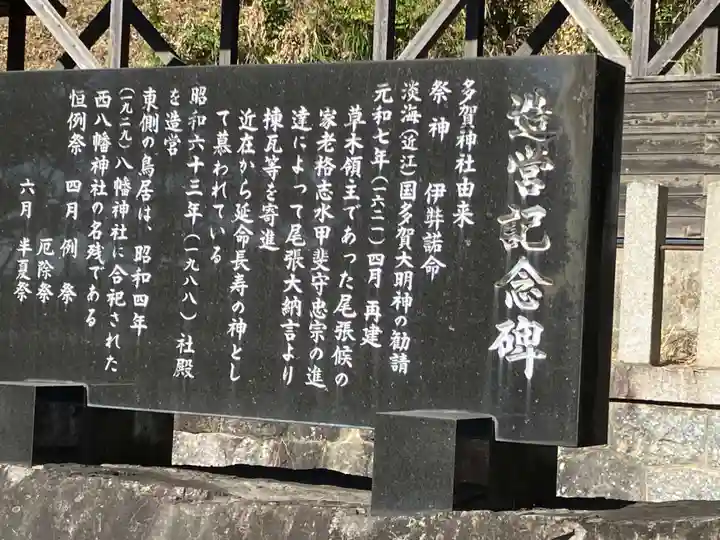 造営記念碑
多賀神社由来
祭神　伊弉諾命
淡海（近江）国多賀大明神の勧請
元和七年（一六二一）四月　再建
草木領主であった尾張候の
家老格志水甲斐守忠宗の進
達によって尾張大納言より
棟瓦等を寄進
近在から延命長寿の神とし
て慕われている
昭和六十三年（一九八八）社殿
を造営
東側の鳥居は、昭和四年
（一九二九）八幡神社に合祀された
西八幡神社の名残である
恒例祭　四月　例祭
厄除祭
六月　半夏祭